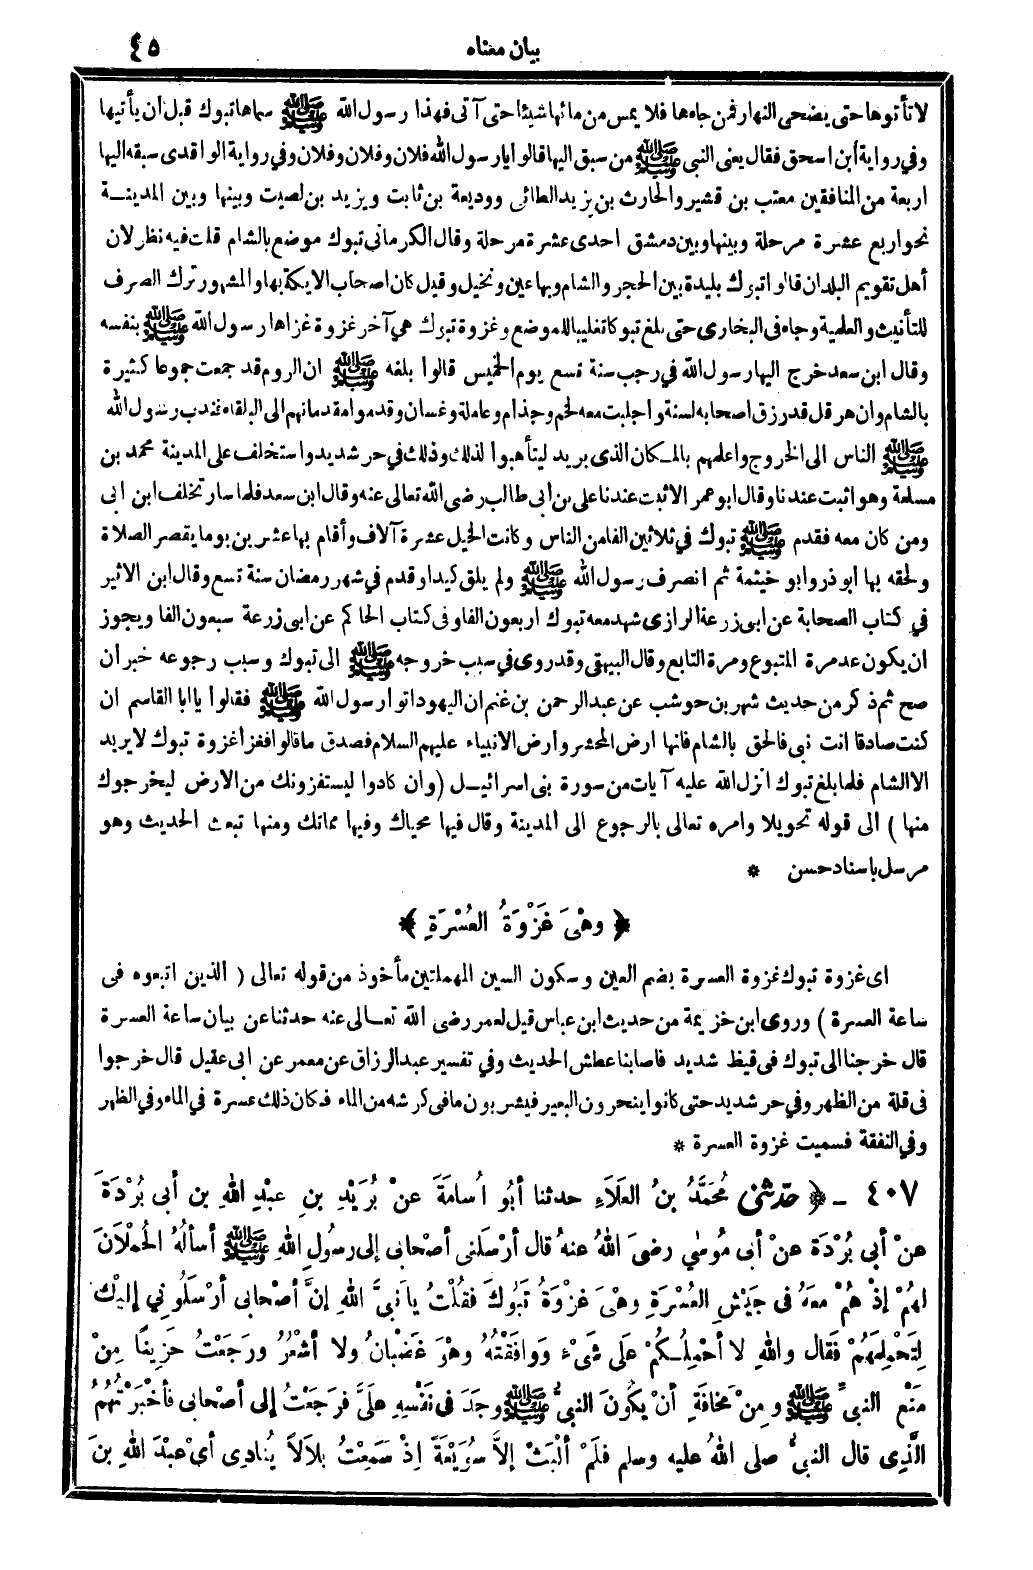 بيان معناه ٤٥
لا تأتوها حتى يضحى النهار فمن جاءها فلا يمس من مائها شيئا حتى آتى فهذا رسول الله ﷺ سماها تبوك قبل ان يأتيها
وفي رواية ابن اسحق فقال يعنى النبى ﷺ من سبق اليها قالوا يا رسول الله فلان وفلان وفلان وفي رواية الواقدى سبقه اليها
اربعة من المنافقين معتب بن قشير والحارث بن يزيد الطائى ووديعة بن ثابت ويزيد بن لصيت وبينها وبين المدينة
نحو اربع عشرة مرحلة وبينها وبين دمشق احدى عشرة مرحلة وقال الكرمانى تبوك موضع بالشام قلت فيه نظر لان
أهل تقويم البلدان قالوا تبوك بليدة بين الحجر والشام وبها عين ونخيل وقيل كان اصحاب الايكة بها والمشهور ترك الصرف
للتأنيث والعلمية وجاء فى البخارى حتى بلغ تبوكا تغليبا للموضع وغزوة تبوك هي آخر غزوة غزاها رسول الله ﷺ بنفسه
وقال ابن سعد خرج اليها رسول الله في رجب سنة تسع يوم الخميس قالوا بلغه ﷺ ان الروم قد جمعت جموعا كثيرة
بالشام وان هرقل قد رزق اصحابه لسنة واجلبت معه لخم وجذام وعاملة وغسان وقدموا مقدماتهم الى البلقاء فندب رسول الله
ﷺ الناس الى الخروج واعلمهم بالمكان الذى يريد ليتأهبوا لذلك وذلك في حر شديد واستخلف على المدينة محمد بن
مسلمة وهو اثبت عندنا وقال ابو عمر الاثبت عندنا على بن ابى طالب رضى الله تعالى عنه وقال ابن سعد فلما سار تخلف ابن ابى
ومن كان معه فقدم ﷺ تبوك في ثلاثين الفا من الناس وكانت الخيل عشرة آلاف وأقام بها عشرين يوما يقصر الصلاة
ولحقه بها ابو ذر وابو خيثمة ثم انصرف رسول الله ﷺ ولم يلق كيدا وقدم في شهر رمضان سنة تسع وقال ابن الاثير
في كتاب الصحابة عن ابى زرعة الرازى شهد معه تبوك اربعون الفا وفى كتاب الحاكم عن ابى زرعة سبعون الفا ويجوز
ان يكون عد مرة المتبوع ومرة التابع وقال البيهقى وقد روى في سبب خروجه ﷺ الى تبوك وسبب رجوعه خبر ان
صح ثم ذكر من حديث شهر بن حوشب عن عبد الرحمن بن غنم ان اليهود اتوا رسول الله ﷺ فقالوا يا ابا القاسم ان
كنت صادقا انت نبى فالحق بالشام فانها ارض المحشر وارض الانبياء عليهم السلام فصدق ما قالوا فغزا غزوة تبوك لا يريد
الا الشام فلما بلغ تبوك انزل الله عليه آيات من سورة بنى اسرائيل (وان كادوا ليستفزونك من الارض ليخرجوك
منها) الى قوله تحويلا وامره تعالى بالرجوع الى المدينة وقال فيها محياك وفيها مماتك ومنها تبعث الحديث وهو
مرسل باسناد حسن *
﴿ وهْىَ غَزْوَةُ العُسْرَةِ ﴾
اى غزوة تبوك غزوة العسرة بضم العين وسكون السين المهملتين مأخوذ من قوله تعالى (الذين اتبعوه فى
ساعة العسرة) وروى ابن خزيمة من حديث ابن عباس قيل لعمر رضى الله تعالى عنه حدثنا عن بيان ساعة العسرة
قال خرجنا الى تبوك فى قيظ شديد فاصابنا عطش الحديث وفي تفسير عبد الرزاق عن معمر عن ابى عقيل قال خرجوا
فى قلة من الظهر وفي حر شديد حتى كانوا ينحرون البعير فيشربون ما فى كرشه من الماء فكان ذلك عسرة في الماء وفي الظهر
وفي النفقة فسميت غزوة العسرة *
٤٠٧ - ﴿ حدثنى مُحَمَّدُ بنُ العَلَاءِ حدثنا أبُو أُسامَةَ عنْ بُرَيْدِ بنِ عبْدِ اللهِ بن أبى بُرْدَةَ
عنْ أبي بُرْدَةَ عنْ أبى مُوسٰي رضىَ اللهُ عنهُ قال أرْسَلَنى أصْحابى إلى رسُولِ اللهِ ﷺ أسألُهُ الحُمْلَانَ
لهُمْ إذْ هُمْ معهُ فى جَيْشِ العُسْرَةِ وهْىَ غزْوَةُ تَبُوكَ فقُلْتُ يا نَبىَّ اللهِ إنَّ أصْحابى أرْسَلُوني إليْك
لِتَحْمِلَهُمْ فَقال واللهِ لا أحْمِلُكُمْ عَلَى شَىْءٍ وَوَافَقْتُهُ وهْوَ غَضْبانُ ولا أشْعُرُ ورَجَعْتُ حَزِينًا مِنْ
مَنْعِ النبىِّ ﷺ ومِنْ مَخافَةِ أنْ يكُونَ النبىُّ ﷺ وجَدَ فى نَفْسِهِ علَىَّ فَرَجَعْتُ إلى أصْحابى فأخْبَرْتُهُمُ
الَّذِى قال النبىُّ صلى اللهُ عليه وسلم فلَمْ ألْبَثْ إلاَّ سُوَيْعَةً إذْ سَمِعْتُ بِلاَلاً يُنادِى أىْ عبْدَ اللهِ بنَ